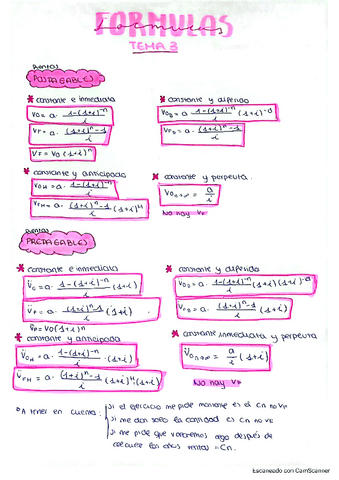 FORMULAS
formulas
TEMA 3
Rentas
POSTPAGABLES
* constante e inmediata
V0 = a · 1-(1+i)^-n / i
VF = a · (1+i)^n-1 / i
VF = V0 (1+i)^n
* constante y diferido
V0D = a · 1-(1+i)^-n / i (1+i)^-d
VFD = a · (1+i)^n-1 / i
* constante y anticipada
V0H = a · 1-(1+i)^-n / i
VFH = a · (1+i)^n-1 / i (1+i)^H
* constante y perpetua
V0n→∞ = a / i
No hay VF
Rentas
PREPAGABLES
* constante e inmediata
V̈0 = a · 1-(1+i)^-n / i (1+i)
V̈F = a · (1+i)^n-1 / i (1+i)
V̈F = V0(1+i)^n
* constante y diferido
V̈0D = a · 1-(1+i)^-n / i (1+i)(1+i)^-d
V̈FD = a · (1+i)^n-1 / i (1+i)
* constante y anticipada
V̈0H = a · 1-(1+i)^-n / i (1+i)
V̈FH = a · (1+i)^n-1 / i (1+i)^H (1+i)
* constante inmediata y perpetua
V̈0n→∞ = a / i (1+i)
No hay VF
A tener en cuenta:
Si el ejercicio me pide montante es el Cn no VF
Si me dan solo la cantidad es C1 no V0
Si me pide que valoremos algo después de
calcular los años rentas = Cn.
Escaneado con CamScanner